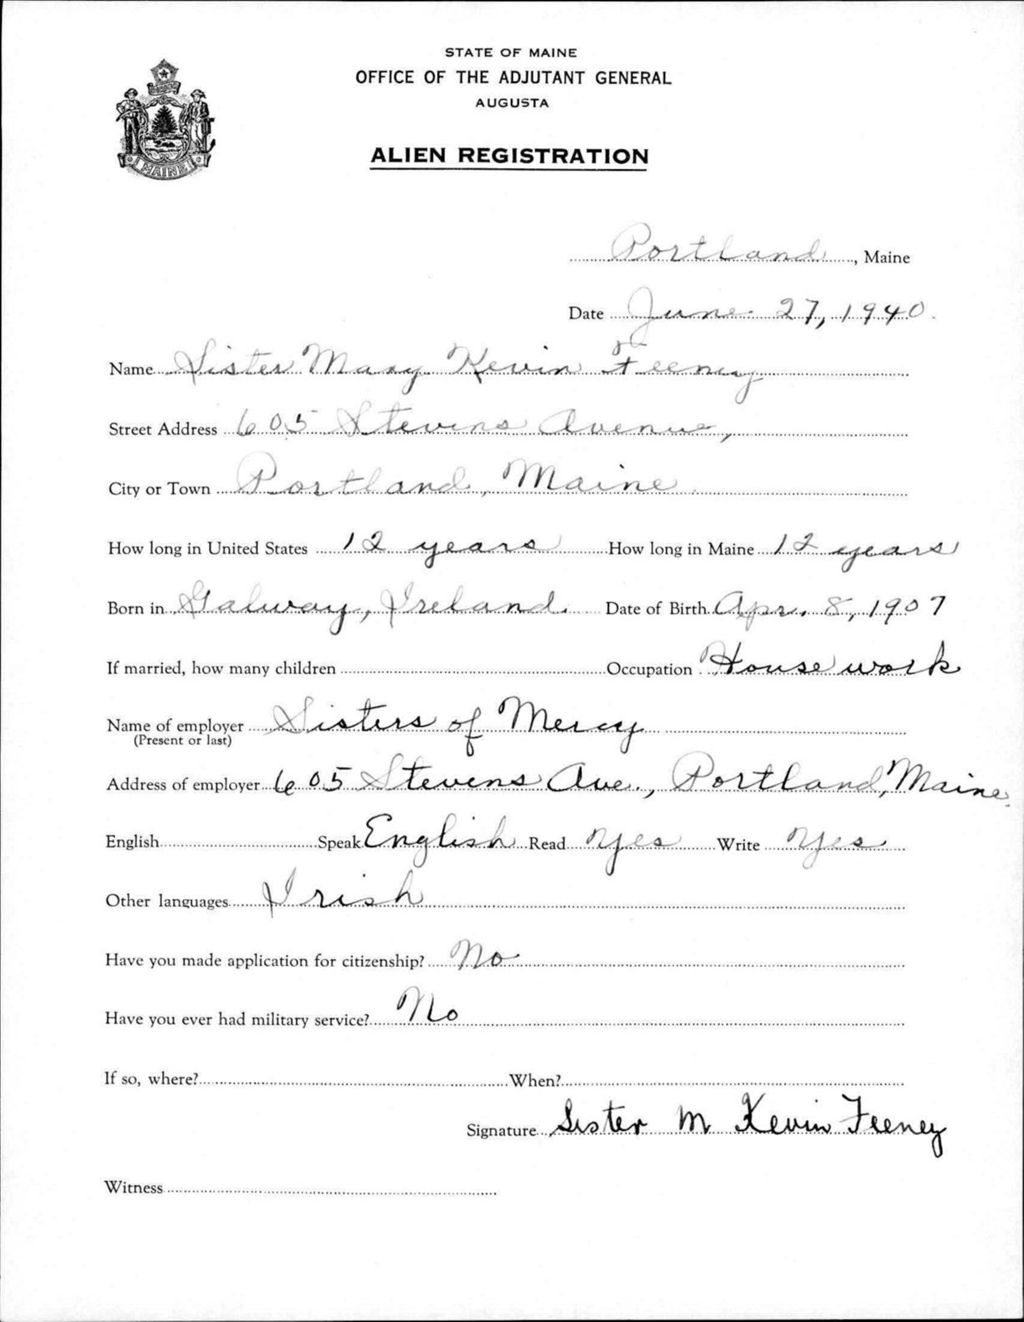 STATE OF MAINE
OFFICE OF THE ADJUTANT GENERAL
AUGUSTA
ALIEN REGISTRATION
MAINE
Portland, Maine
Date June 27, 1940.
Name Sister Mary Kevin Feeney
Street Address 605 Stevens Avenue,
City or Town Portland, Maine
How long in United States 12 years How long in Maine 12 years
Born in Galway, Ireland. Date of Birth Apr. 8, 1907
If married, how many children Occupation Housework
Name of employer Sisters of Mercy
(Present or last)
Address of employer 605 Stevens Ave., Portland, Maine.
English Speak English Read Yes Write Yes
Other languages Irish
Have you made application for citizenship? No
Have you ever had military service? No
If so, where? When?
Signature Sister M Kevin Feeney
Witness